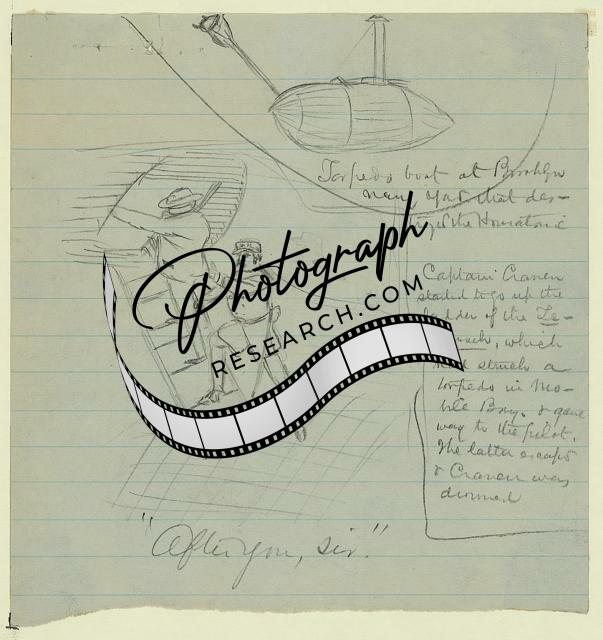 Torpedo boat at Brooklyn
navy yard that des-
the Housatonic
Captain Craven
started to go up the
ladder of the Te-
which
struck a
torpedo in Mo-
bile Bay, & gave
way to the pilot.
The latter escaped
& Craven was
drowned
Photograph
RESEARCH.COM
"After you, sir."